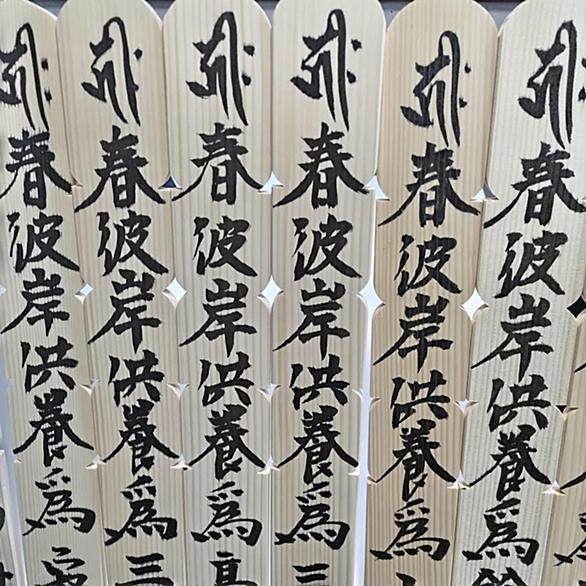 𑖮𑖿𑖨𑖱𑖾春彼岸供養爲
𑖮𑖿𑖨𑖱𑖾春彼岸供養爲
𑖮𑖿𑖨𑖱𑖾春彼岸供養爲
𑖮𑖿𑖨𑖱𑖾春彼岸供養爲
𑖮𑖿𑖨𑖱𑖾春彼岸供養爲
𑖮𑖿𑖨𑖱𑖾春彼岸供養爲